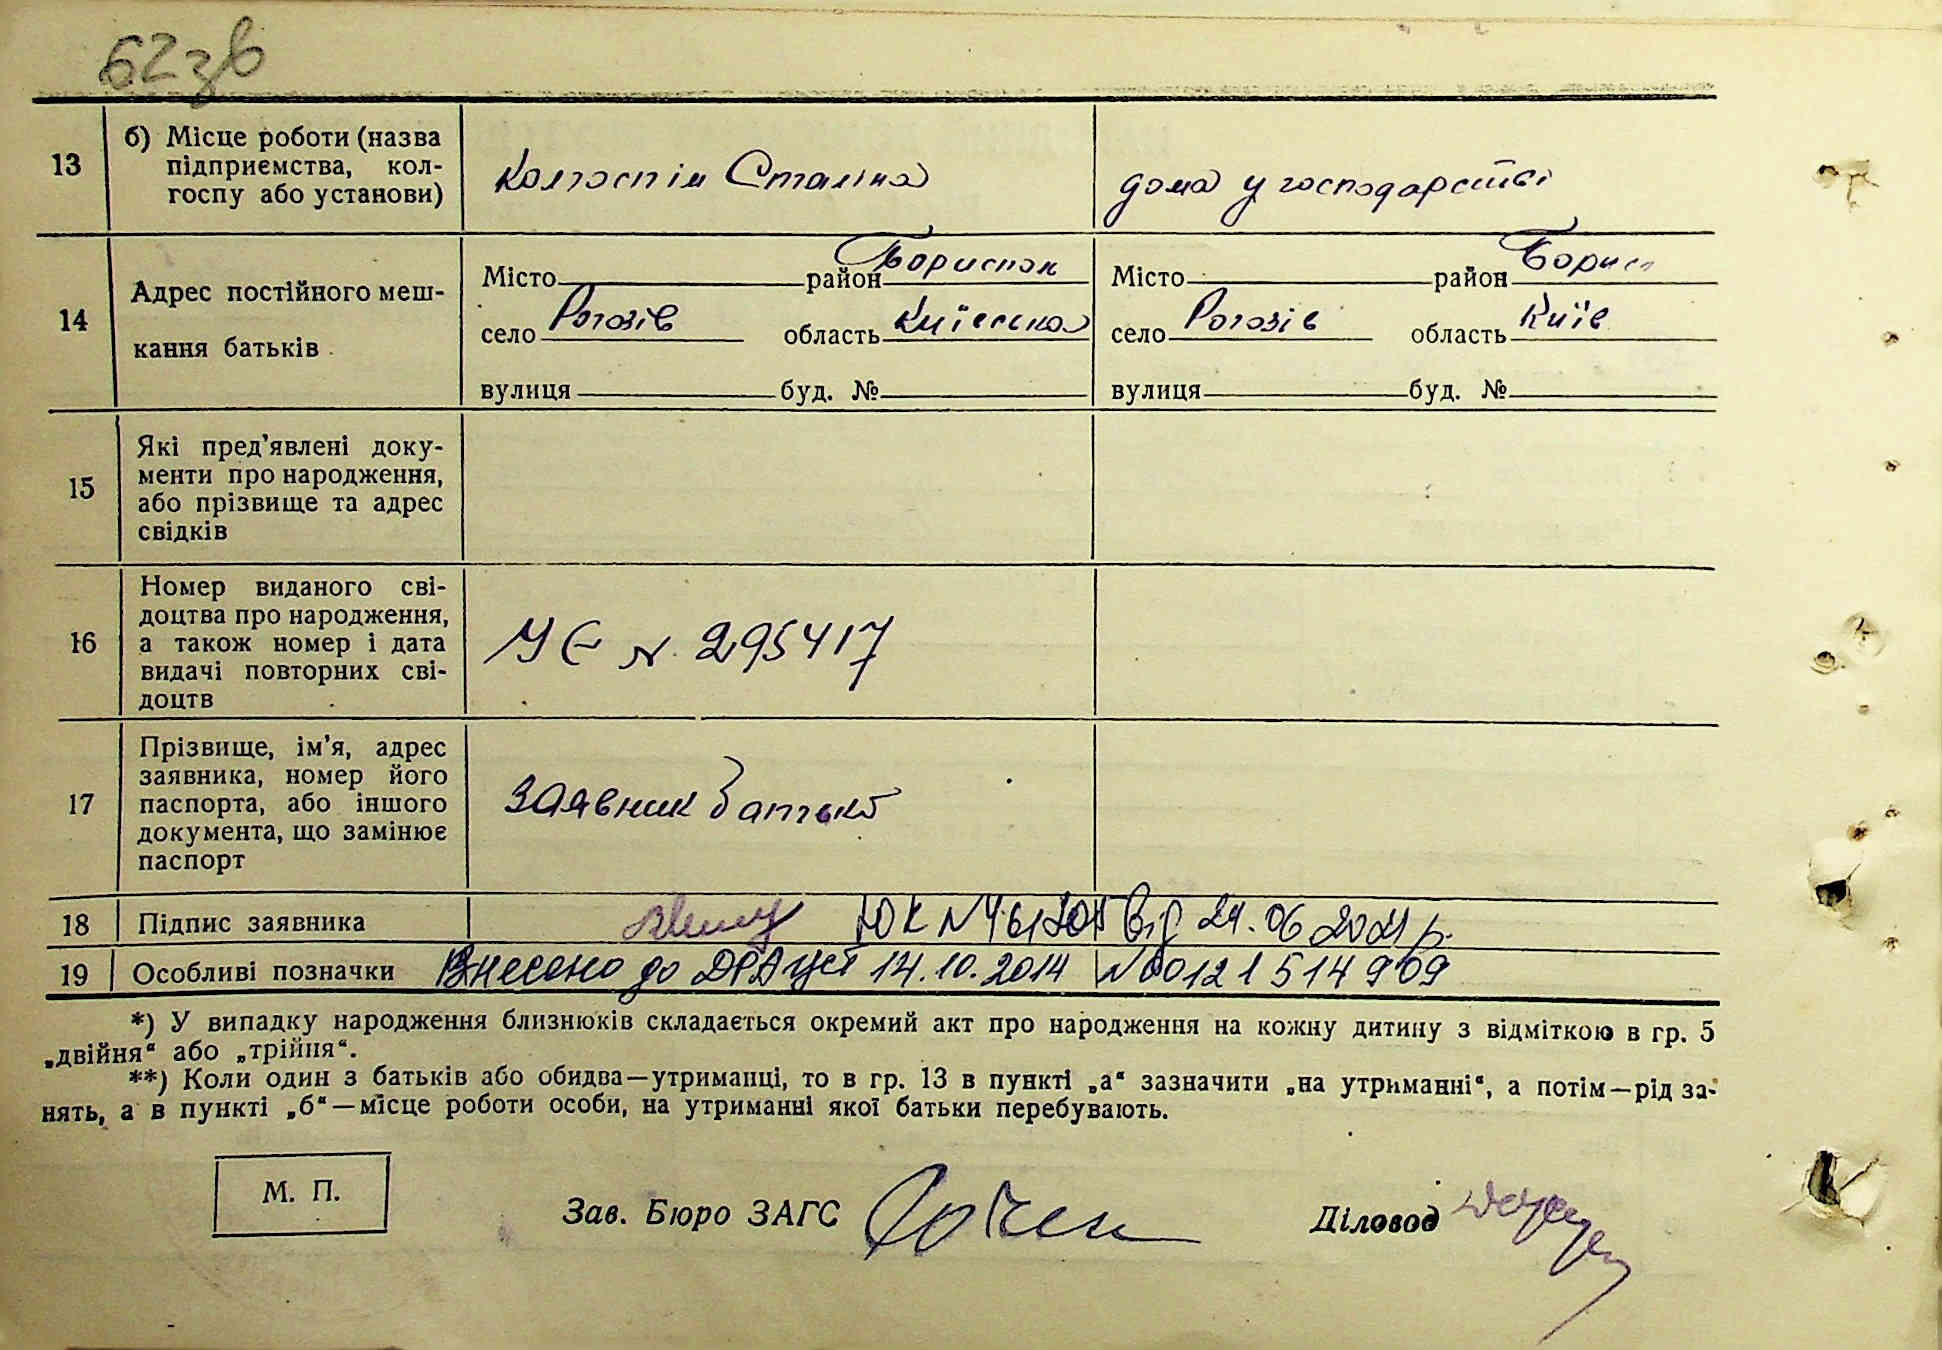 62зв
13 б) Місце роботи (назва
підприємства, кол-
госпу або установи)
колгосп ім Сталіна дома у господарстві
14 Адрес постійного меш-
кання батьків
Місто район Бориспол Місто район Борис
село Рогозів область Київська село Рогозів область Київ
вулиця буд. № вулиця буд. №
15 Які пред'явлені доку-
менти про народження,
або прізвище та адрес
свідків
16 Номер виданого сві-
доцтва про народження,
а також номер і дата
видачі повторних сві-
доцтв
УЄ N 295417
17 Прізвище, ім'я, адрес
заявника, номер його
паспорта, або іншого
документа, що замінює
паспорт
заявник батько
18 Підпис заявника від 24.06.2021 р.
19 Особливі позначки Внесено до ДРАЦСГ 14.10.2014 N 00121514909
*) У випадку народження близнюків складається окремий акт про народження на кожну дитину з відміткою в гр. 5
„двійня“ або „трійня“.
**) Коли один з батьків або обидва—утриманці, то в гр. 13 в пункті „а“ зазначити „на утриманні“, а потім—рід за-
нять, а в пункті „б“—місце роботи особи, на утриманні якої батьки перебувають.
М. П.
Зав. Бюро ЗАГС Діловод